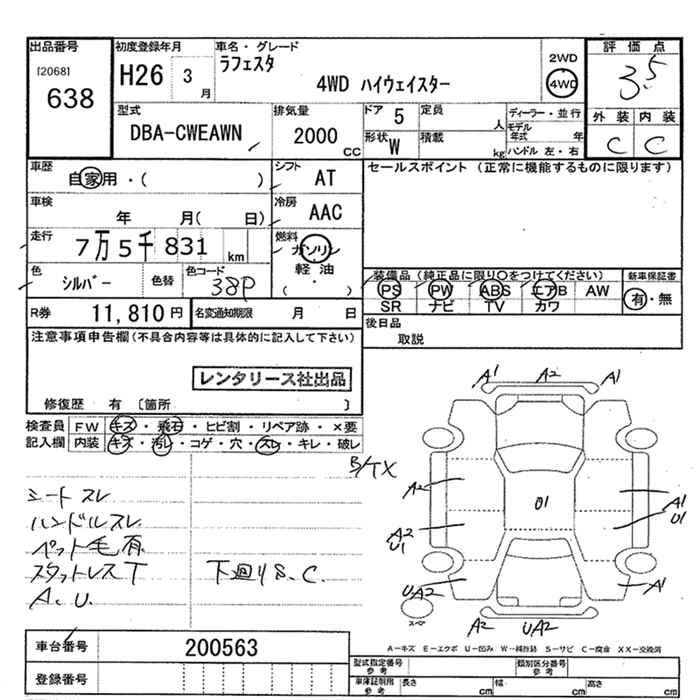 出品番号 初度登録年月 車名・グレード 評価点
[2068] H26 3 月 ラフェスタ 2WD
638 4WD ハイウェイスター 4WD 3.5
型式 排気量 ドア 5 定員 人 ディーラー・並行 外装 内装
DBA-CWEAWN 2000 CC 形状 W 積載 kg モデル年式 年 C C
ハンドル 左・右
車歴 自家用・( ) シフト AT セールスポイント (正常に機能するものに限ります)
車検 年 月( 日) 冷房 AAC
走行 7万5千831 km 燃料 ガソリン
軽油
( ・ )
色 シルバー 色替 色コード 38P
装備品 (純正品に限り○をつけてください) 新車保証書
PS PW ABS エアB AW 有・無
SR ナビ TV カワ
R券 11,810円 名変通知期限 月 日
後日品
取説
注意事項申告欄(不具合内容等は具体的に記入して下さい)
レンタリース社出品
修復歴 有 〔箇所 〕
検査員 FW キズ・飛石・ヒビ割・リペア跡・×要
記入欄 内装 キズ・汚レ・コゲ・穴・スレ・キレ・破レ
シートスレ
ハンドルスレ
ペット毛有
スタットレスT 下廻りS.C.
A.U.
B/TX
A1 A2 A1
A2 01 A1
A2 U1
U1
U A1
UA2
スペア
A2 UA2
A-キズ E-エクボ U-凹み W-補修跡 S-サビ C-腐食 XX-交換済
車台番号 200563
登録番号
型式指定番号 参考 類別区分番号 参考
車庫証明用 参考 長さ cm 幅 cm 高さ cm